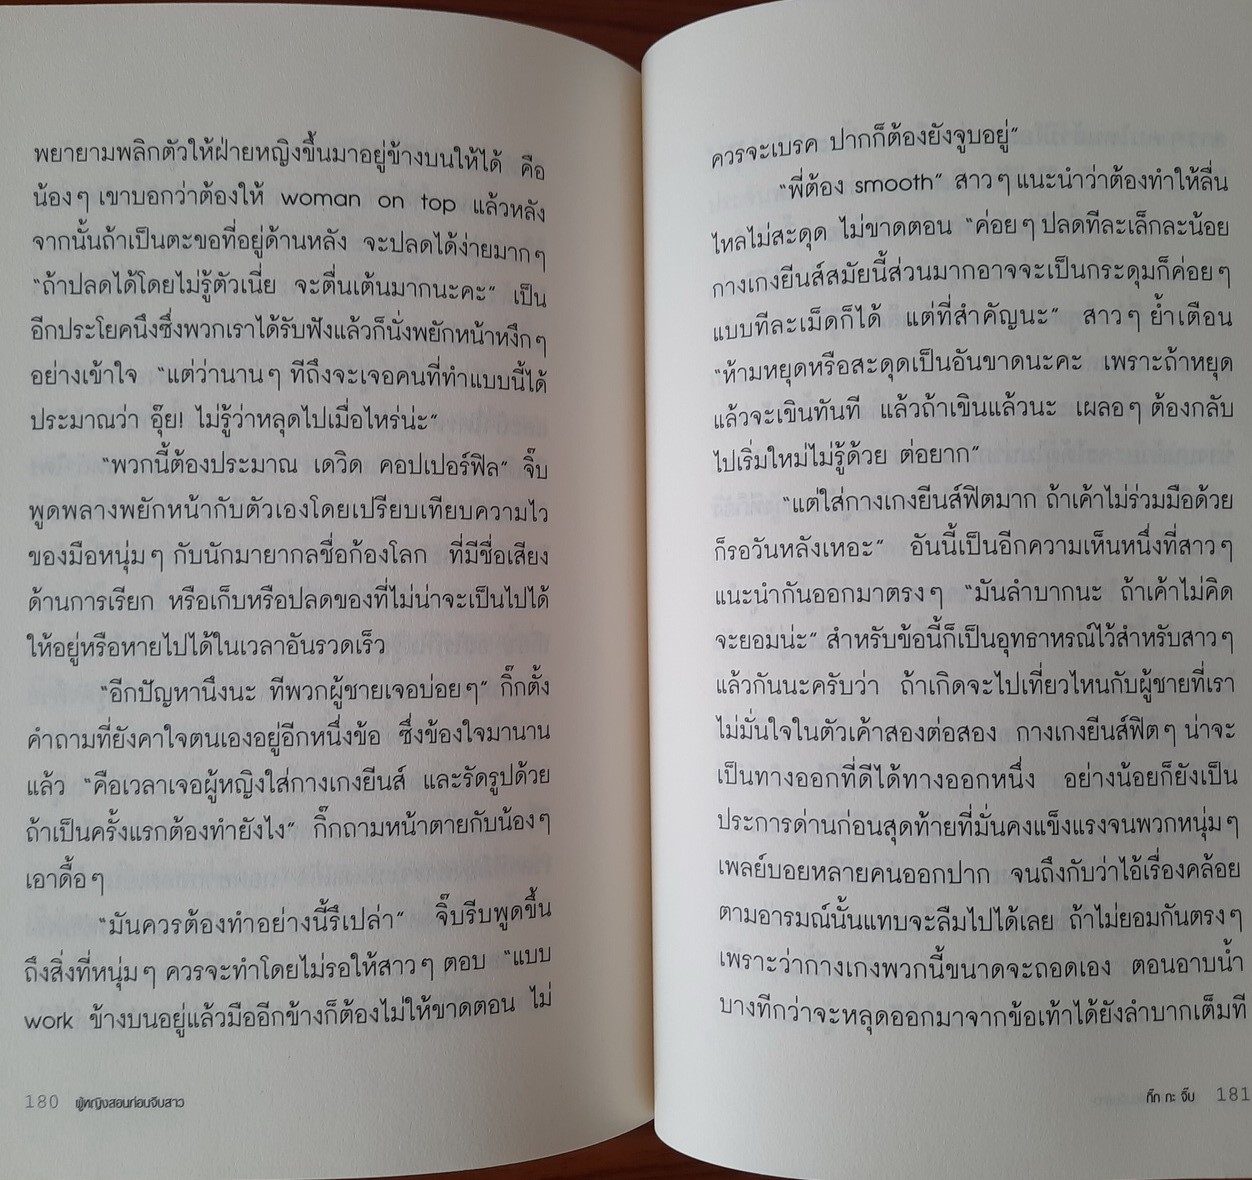 พยายามพลิกตัวให้ฝ่ายหญิงขึ้นมาอยู่ข้างบนให้ได้ คือ
น้องๆ เขาบอกว่าต้องให้ woman on top แล้วหลัง
จากนั้นถ้าเป็นตะขอที่อยู่ด้านหลัง จะปลดได้ง่ายมากๆ
"ถ้าปลดได้โดยไม่รู้ตัวเนี่ย จะตื่นเต้นมากนะคะ" เป็น
อีกประโยคนึงซึ่งพวกเราได้รับฟังแล้วก็นั่งพยักหน้าหงึกๆ
อย่างเข้าใจ "แต่ว่านานๆ ทีถึงจะเจอคนที่ทำแบบนี้ได้
ประมาณว่า อุ๊ย! ไม่รู้ว่าหลุดไปเมื่อไหร่น่ะ"
"พวกนี้ต้องประมาณ เดวิด คอปเปอร์ฟิล" จิ๊บ
พูดพลางพยักหน้ากับตัวเองโดยเปรียบเทียบความไว
ของมือหนุ่มๆ กับนักมายากลชื่อก้องโลก ที่มีชื่อเสียง
ด้านการเรียก หรือเก็บหรือปลดของที่ไม่น่าจะเป็นไปได้
ให้อยู่หรือหายไปได้ในเวลาอันรวดเร็ว
"อีกปัญหานึงนะ ทีพวกผู้ชายเจอบ่อยๆ" กิ๊กตั้ง
คำถามที่ยังคาใจตนเองอยู่อีกหนึ่งข้อ ซึ่งข้องใจมานาน
แล้ว "คือเวลาเจอผู้หญิงใส่กางเกงยีนส์ และรัดรูปด้วย
ถ้าเป็นครั้งแรกต้องทำยังไง" กิ๊กถามหน้าตายกับน้องๆ
เอาดื้อๆ
"มันควรต้องทำอย่างนี้รึเปล่า" จิ๊บรีบพูดขึ้น
ถึงสิ่งที่หนุ่มๆ ควรจะทำโดยไม่รอให้สาวๆ ตอบ "แบบ
work ข้างบนอยู่แล้วมืออีกข้างก็ต้องไม่ให้ขาดตอน ไม่
180 ผู้หญิงสอนก่อนจีบสาว
ควรจะเบรค ปากก็ต้องยังจูบอยู่"
"พี่ต้อง smooth" สาวๆ แนะนำว่าต้องทำให้ลื่น
ไหลไม่สะดุด ไม่ขาดตอน "ค่อยๆ ปลดทีละเล็กละน้อย
กางเกงยีนส์สมัยนี้ส่วนมากอาจจะเป็นกระดุมก็ค่อยๆ
แบบทีละเม็ดก็ได้ แต่ที่สำคัญนะ" สาวๆ ย้ำเตือน
"ห้ามหยุดหรือสะดุดเป็นอันขาดนะคะ เพราะถ้าหยุด
แล้วจะเขินทันที แล้วถ้าเขินแล้วนะ เผลอๆ ต้องกลับ
ไปเริ่มใหม่ไม่รู้ด้วย ต่อยาก"
"แต่ใส่กางเกงยีนส์ฟิตมาก ถ้าเค้าไม่ร่วมมือด้วย
ก็รอวันหลังเหอะ" อันนี้เป็นอีกความเห็นหนึ่งที่สาวๆ
แนะนำกันออกมาตรงๆ "มันลำบากนะ ถ้าเค้าไม่คิด
จะยอมน่ะ" สำหรับข้อนี้ก็เป็นอุทธาหรณ์ไว้สำหรับสาวๆ
แล้วกันนะครับว่า ถ้าเกิดจะไปเที่ยวไหนกับผู้ชายที่เรา
ไม่มั่นใจในตัวเค้าสองต่อสอง กางเกงยีนส์ฟิตๆ น่าจะ
เป็นทางออกที่ดีได้ทางออกหนึ่ง อย่างน้อยก็ยังเป็น
ประการด่านก่อนสุดท้ายที่มั่นคงแข็งแรงจนพวกหนุ่มๆ
เพลย์บอยหลายคนออกปาก จนถึงกับว่าไอ้เรื่องคล้อย
ตามอารมณ์นั้นแทบจะลืมไปได้เลย ถ้าไม่ยอมกันตรงๆ
เพราะว่ากางเกงพวกนี้ขนาดจะถอดเอง ตอนอาบน้ำ
บางทีกว่าจะหลุดออกมาจากข้อเท้าได้ยังลำบากเต็มที
กิ๊ก กะ จิ๊บ 181